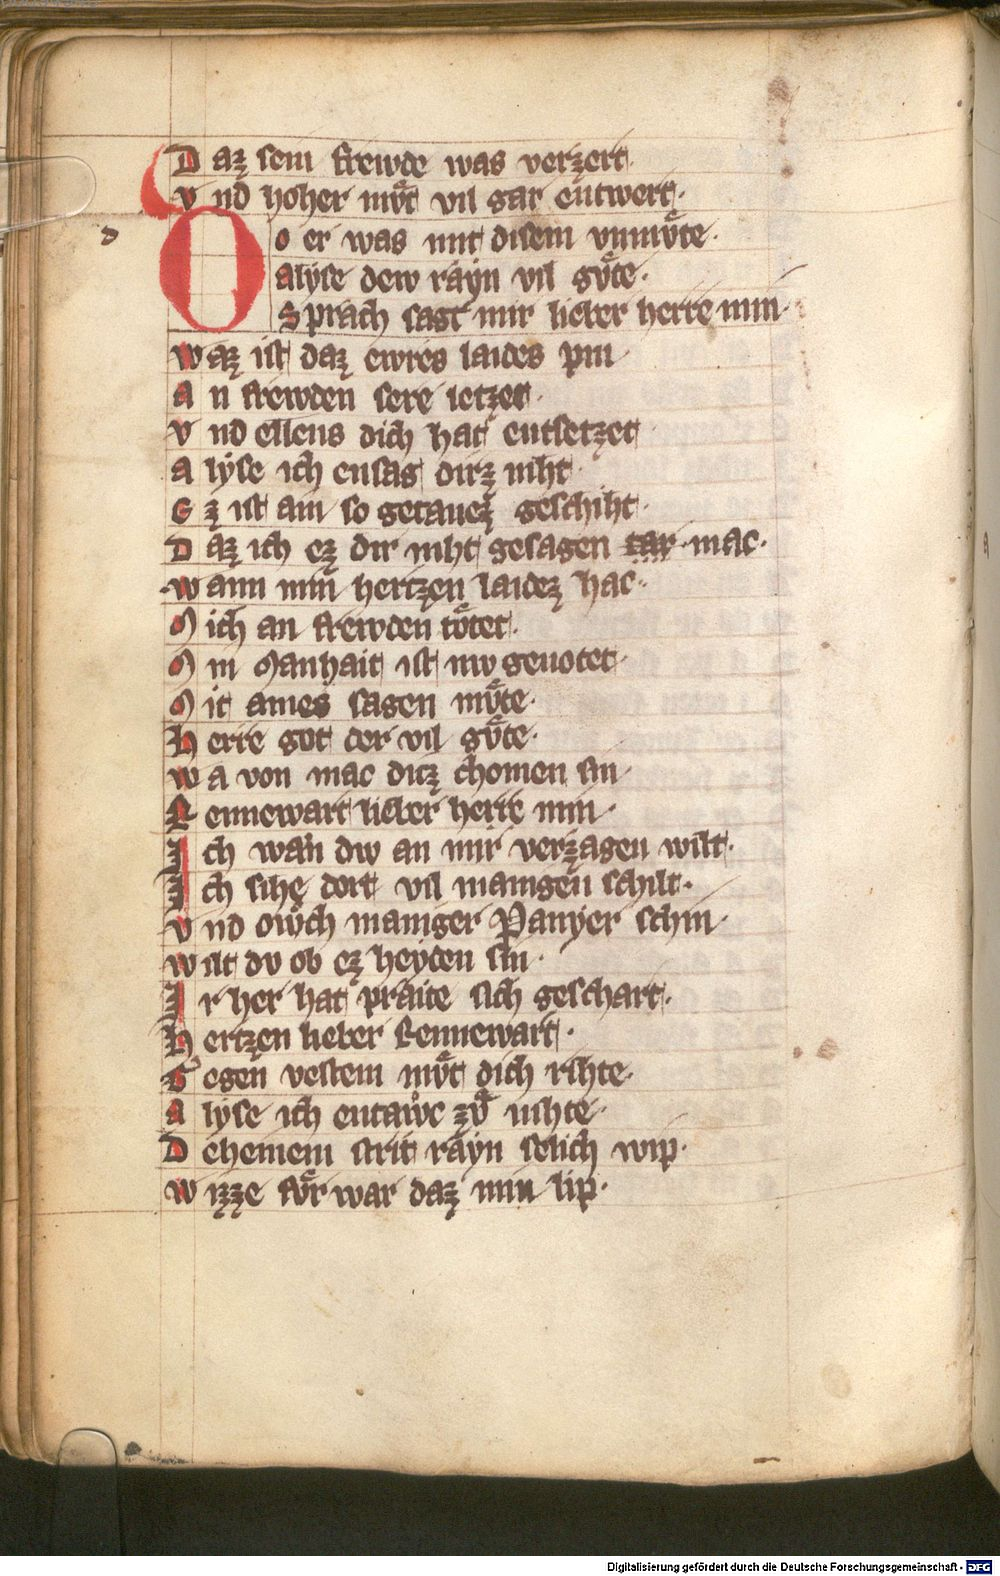 D az sein frewde was verzert·
v nd hoher mvͦt vil gar entwert·
d
D o er was mit disem vnmvͦte·
alyse dew rayn vil gvͦte·
Sprach sagt mir lieber herre min·
w az ist daz ewres laides pin
a n frewden sere letzet·
v nd ellens dich hat entsetzet
a lyse ich ensag dirz niht·
E z ist ain so getanez geschiht·
D az ich ez dir niht gesagen tar mac·
w ann min hertzen laidez hac·
M ich an frewden toͤtet·
M in Manhait ist nw genotet·
M it aines sagen mvͦte·
H erre got der vil gvͦte·
w a von mac ditz chomen sin
R ennewart lieber herre min·
I ch wan dw an mir verzagen wilt·
I ch sihe dort vil manigen schilt·
v nd owch maniger Panyer schin·
w ilt dv ob ez heyden sin·
I r her hat praite sich geschart·
H ertzen lieber Rennewart·
G egen vestem mvͦt dich rihte·
a lyse ich entawͦc zvͦ nihte·
D eheinem strit rayn selich wip·
w izze fvͤr war daz min lip·
Digitalisierung gefördert durch die Deutsche Forschungsgemeinschaft - DFG